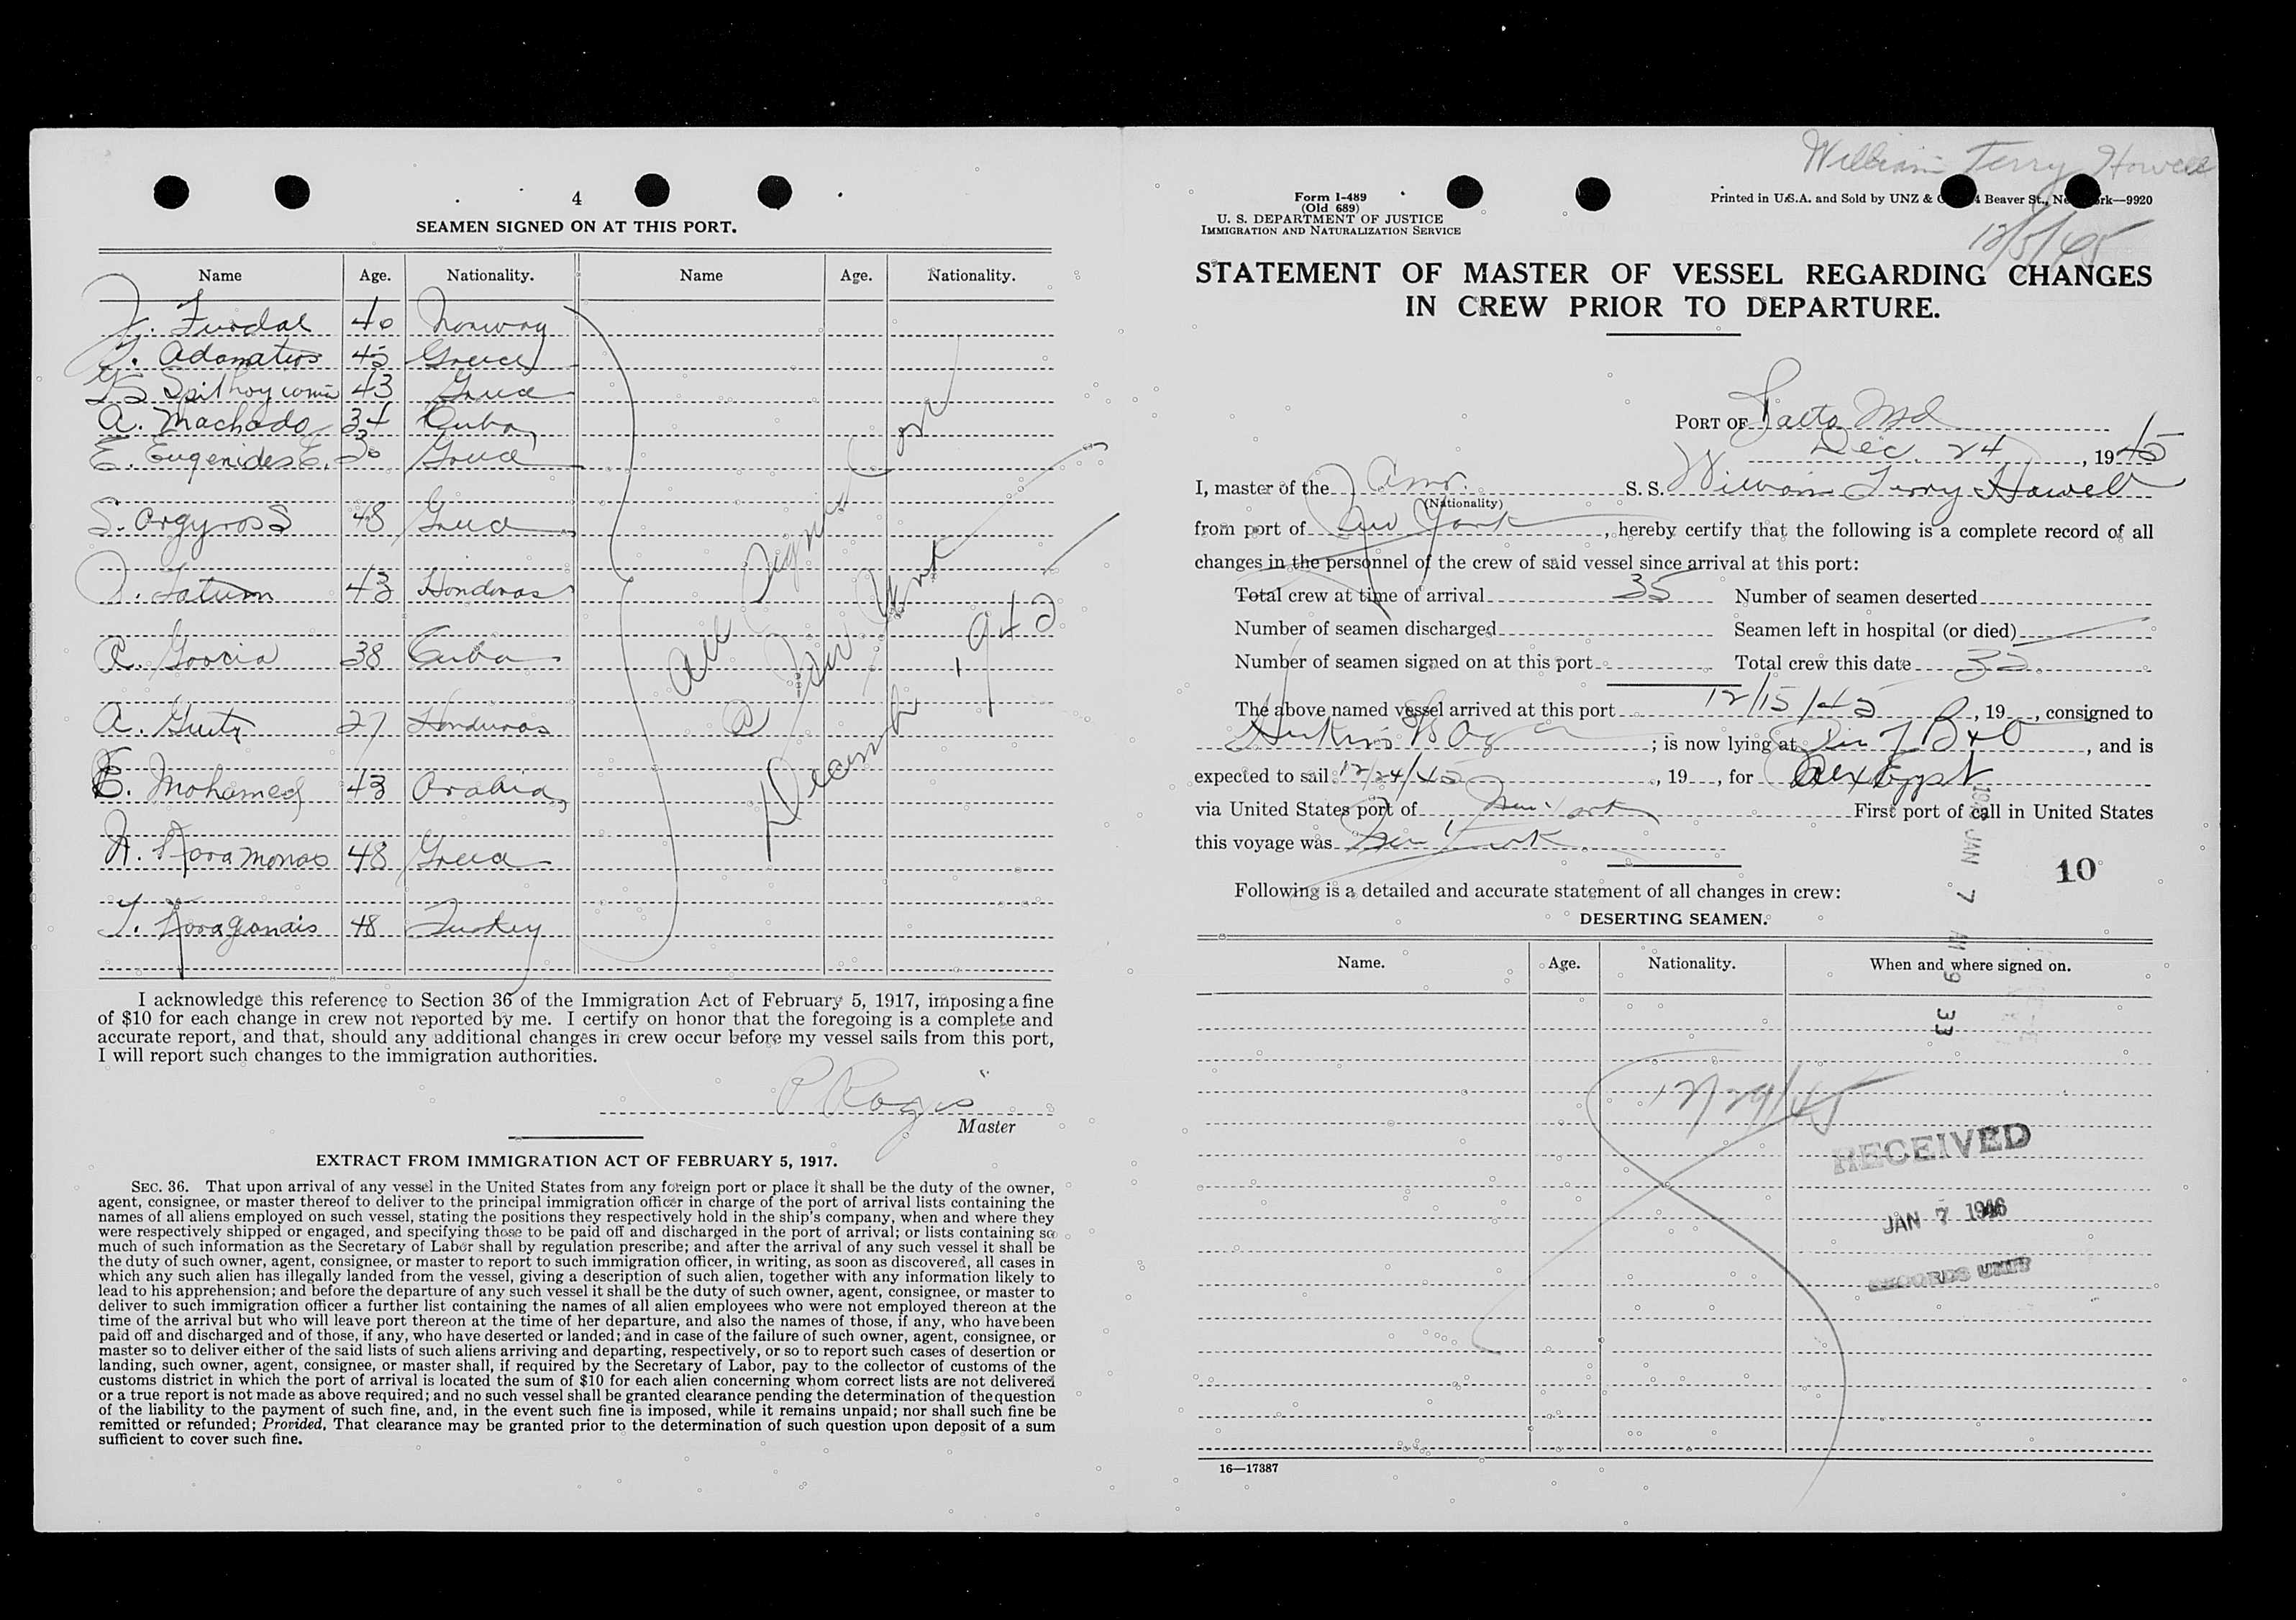 4
SEAMEN SIGNED ON AT THIS PORT.
Name Age. Nationality. Name Age. Nationality.
40 Norway
Adamatios 45 Greece
43 Greece
A. Machado 34 Cuba
E. Eugenides E. 30 Greece
S. Argyros S 48 Greece
Tatum 43 Honduras
R. Garcia 38 Cuba
A. 27 Honduras
E. Mohamed 43 Arabia
48 Greece
48 Turkey
All Signed on
@ New York
December 1945
I acknowledge this reference to Section 36 of the Immigration Act of February 5, 1917, imposing a fine
of $10 for each change in crew not reported by me. I certify on honor that the foregoing is a complete and
accurate report, and that, should any additional changes in crew occur before my vessel sails from this port,
I will report such changes to the immigration authorities.
Master
EXTRACT FROM IMMIGRATION ACT OF FEBRUARY 5, 1917.
SEC. 36. That upon arrival of any vessel in the United States from any foreign port or place it shall be the duty of the owner,
agent, consignee, or master thereof to deliver to the principal immigration officer in charge of the port of arrival lists containing the
names of all aliens employed on such vessel, stating the positions they respectively hold in the ship's company, when and where they
were respectively shipped or engaged, and specifying those to be paid off and discharged in the port of arrival; or lists containing so
much of such information as the Secretary of Labor shall by regulation prescribe; and after the arrival of any such vessel it shall be
the duty of such owner, agent, consignee, or master to report to such immigration officer, in writing, as soon as discovered, all cases in
which any such alien has illegally landed from the vessel, giving a description of such alien, together with any information likely to
lead to his apprehension; and before the departure of any such vessel it shall be the duty of such owner, agent, consignee, or master to
deliver to such immigration officer a further list containing the names of all alien employees who were not employed thereon at the
time of the arrival but who will leave port thereon at the time of her departure, and also the names of those, if any, who have been
paid off and discharged and of those, if any, who have deserted or landed; and in case of the failure of such owner, agent, consignee, or
master so to deliver either of the said lists of such aliens arriving and departing, respectively, or so to report such cases of desertion or
landing, such owner, agent, consignee, or master shall, if required by the Secretary of Labor, pay to the collector of customs of the
customs district in which the port of arrival is located the sum of $10 for each alien concerning whom correct lists are not delivered
or a true report is not made as above required; and no such vessel shall be granted clearance pending the determination of the question
of the liability to the payment of such fine, and, in the event such fine is imposed, while it remains unpaid; nor shall such fine be
remitted or refunded; Provided, That clearance may be granted prior to the determination of such question upon deposit of a sum
sufficient to cover such fine.
William Terry Howell
Form I-489
(Old 689)
U. S. DEPARTMENT OF JUSTICE
IMMIGRATION AND NATURALIZATION SERVICE
Printed in U.S.A. and Sold by UNZ & Beaver St.,
12/5/45
STATEMENT OF MASTER OF VESSEL REGARDING CHANGES
IN CREW PRIOR TO DEPARTURE.
PORT OF Balto Md
Dec. 24, 1945
I, master of the Amr. S. S. William Terry Howell
(Nationality)
from port of New York, hereby certify that the following is a complete record of all
changes in the personnel of the crew of said vessel since arrival at this port:
Total crew at time of arrival 35 Number of seamen deserted
Number of seamen discharged Seamen left in hospital (or died)
Number of seamen signed on at this port Total crew this date 35
The above named vessel arrived at this port 12/15/45, 19 , consigned to
; is now lying at Pier 7 B & O, and is
expected to sail 12/24/45, 19 , for Alex Egypt
via United States port of New York First port of call in United States
this voyage was New York
Following is a detailed and accurate statement of all changes in crew:
10
DESERTING SEAMEN.
Name. Age. Nationality. When and where signed on.
JAN 7 AM 9 33
12/29/45
RECEIVED
JAN 7 1946
RECORDS UNIT
16—17387